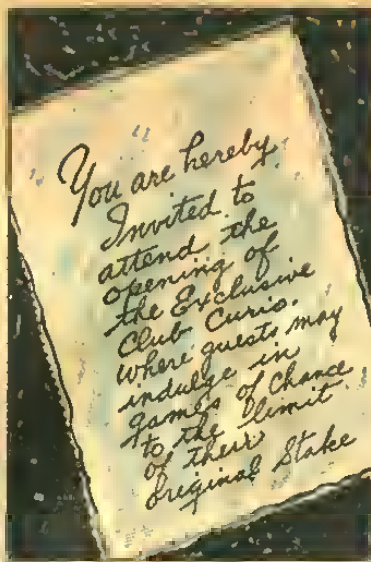 "You are hereby
Invited to
attend the
opening of
the Exclusive
Club Curio.
where guests may
indulge in
games of chance
to the limit
of their
original Stake